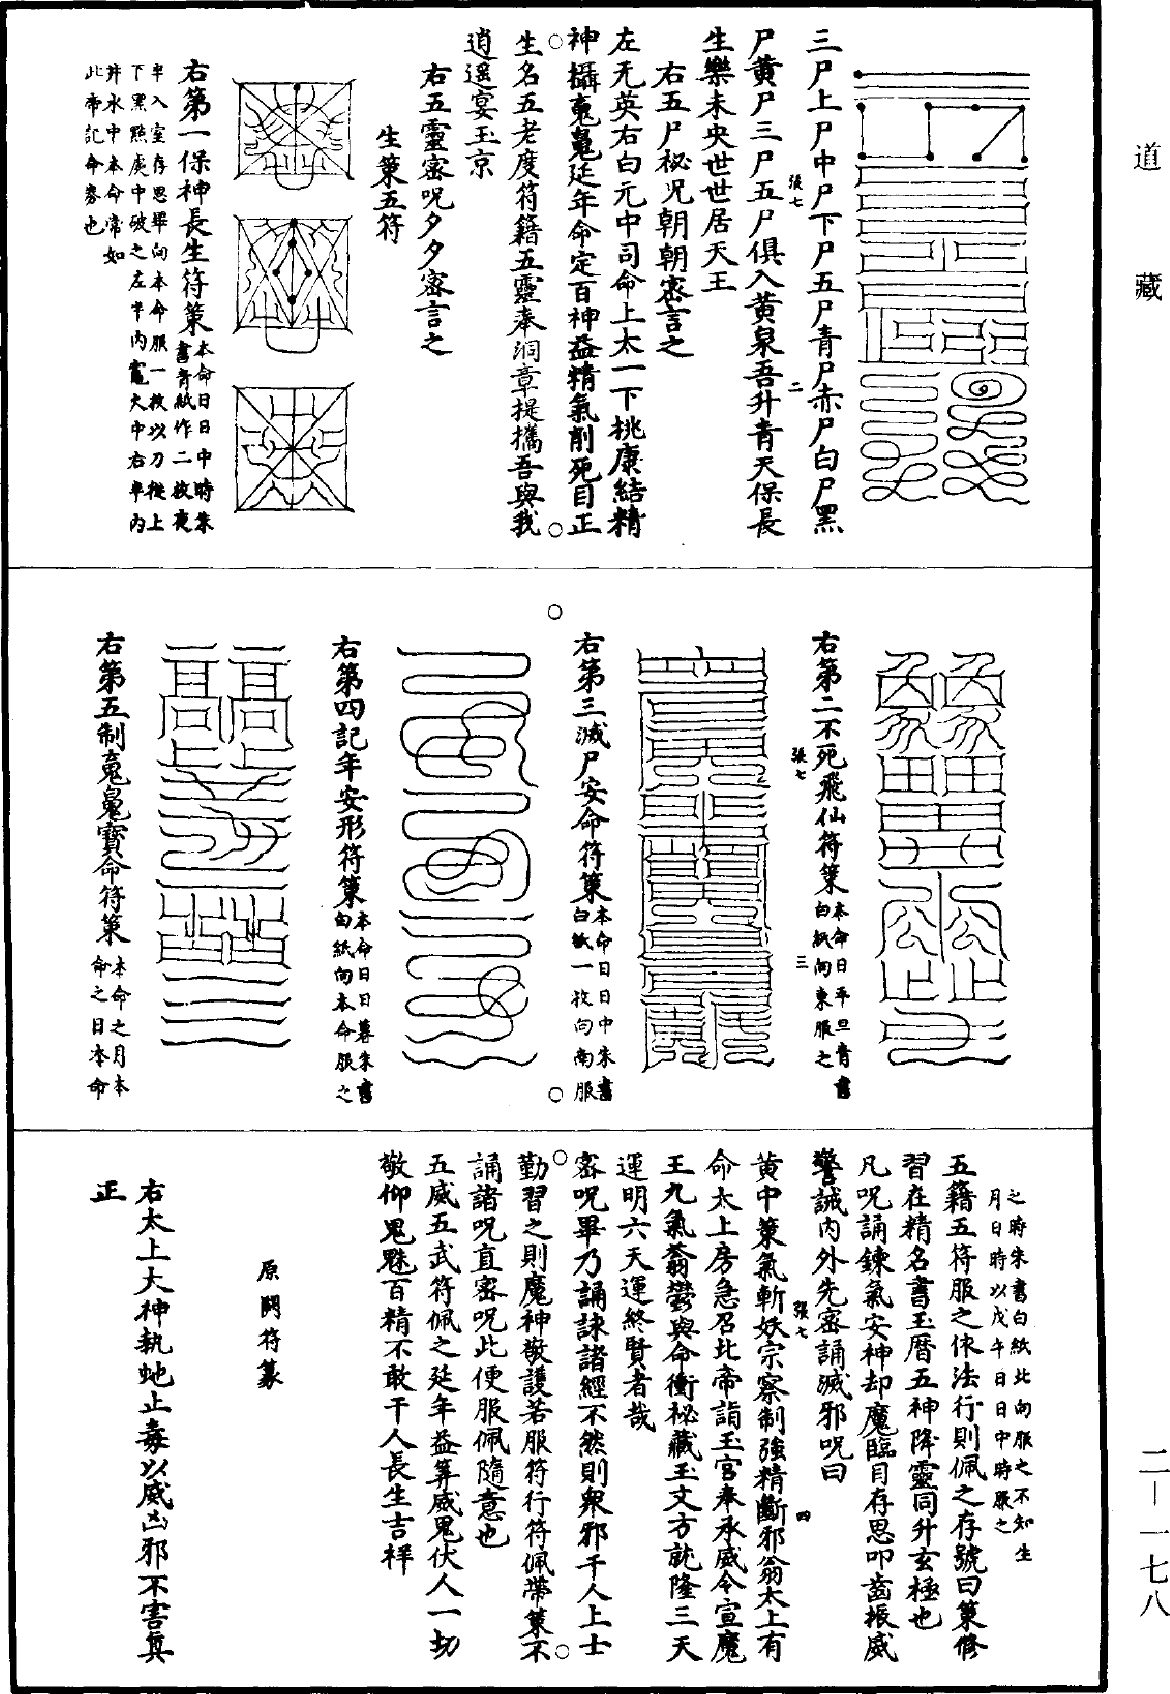 道藏
三尸上尸中尸下尸五尸青尸赤尸白尸黑
尸黃尸三尸五尸俱入黃泉吾升青天保長
生樂未央世世居天王
右五尸祕呪朝朝密言之
左无英右白元中司命上太一下桃康結精
神攝䰟魄延年命定百神益精氣削死目正
生名五老度符籍五靈奉洞章提攜吾與我
逍遥宴玉京
右五靈密呪夕夕密言之
生策五符
右第一保神長生符策本命日日中時朱
書青紙作二枚夜
半入室存思畢向本命服一枚以刀從上
下黑㸃處中破之左半內竈火中右半內
井水中本命常如
此帝記命券也
張七
二
右第二不死飛仙符策本命日平旦青書
白紙向東服之
右第三滅尸安命符策本命日日中朱書
白紙一枚向南服
右第四記年安形符策本命日日暮朱書
白紙向本命服之
右第五制䰟魄寶命符策本命之月本
命之日本命
張七
三
之時朱書白紙北向服之不知生
月日時以戊午日日中時服之
五籍五符服之依法行則佩之存號曰策修
習在精名書玉曆五神降靈同升玄極也
凡呪誦鍊氣安神却魔臨目存思叩齒振威
警誡內外先密誦滅邪呪曰
黃中策氣斬妖宗察制強精斷邪翁太上有
命太上房急召北帝詣玉宮奉承威令宣魔
王九氣蓊鬱與命衝祕藏玉文方訖隆三天
運明六天運終賢者哉
密呪畢乃誦諸經不然則衆邪干人上士
勤習之則魔神敬護若服符行符佩帶策不
誦諸呪直密呪此便服佩隨意也
五威五武符佩之延年益筭威鬼伏人一切
敬仰鬼魅百精不敢干人長生吉祥
張七
四
原闕符篆
右太上大神執虵止毒以威凶邪不害眞
正
二—一七八